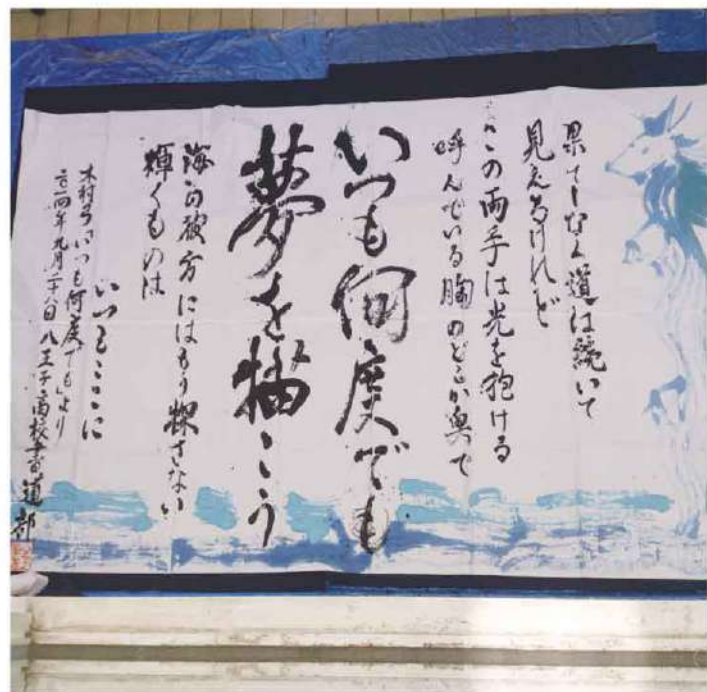 果てしなく道は続いて
見えるけれど
この両手は光を抱ける
呼んでいる胸のどこか奥で
いつも何度でも
夢を描こう
海の彼方にはもう探さない
輝くものは
いつもここに
木村弓「いつも何度でも」より
二〇一四年九月二十八日 八王子高校書道部